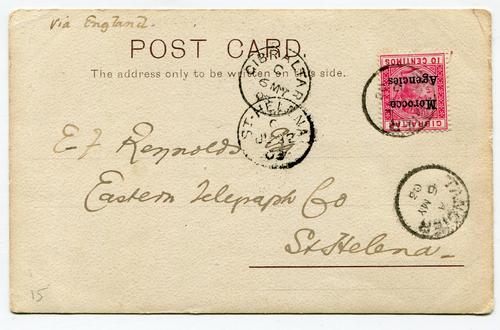 via England.
POST CARD.
The address only to be written on this side.
GIBRALTAR
C
6 MY
ST. HELENA
C
03
10 CENTIMOS
Morocco
Agencies
GIBRALTAR
E J Reynolds
Eastern Telegraph Co
St Helena
TANGIER
A
6 MY
03
15